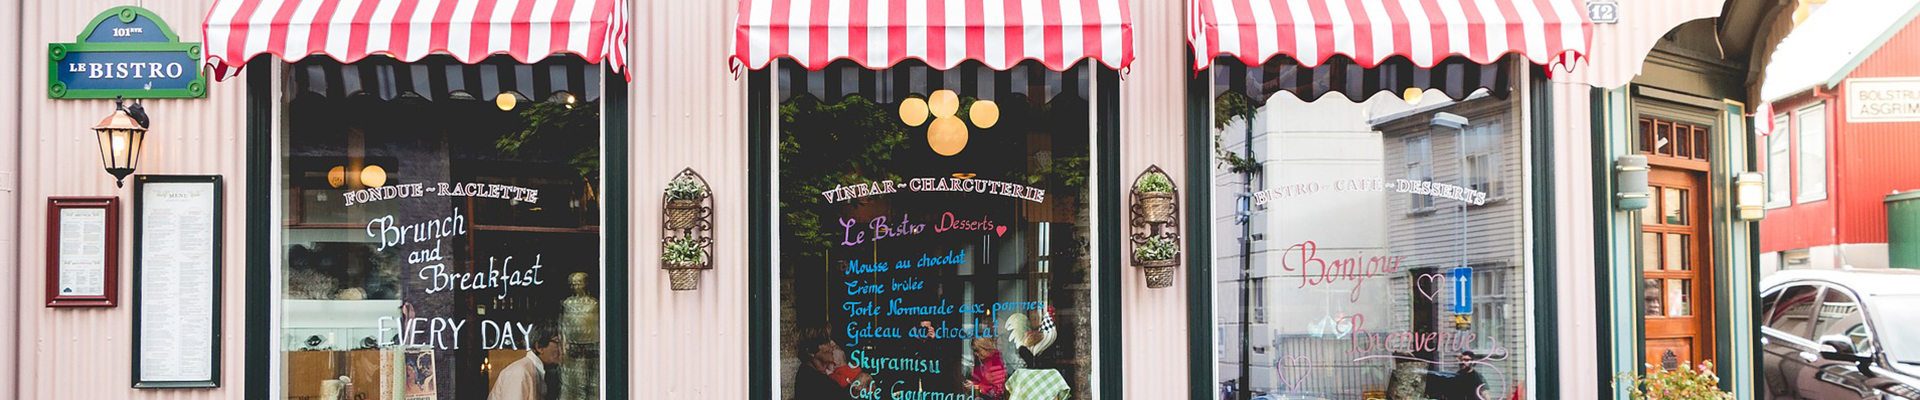 101 RVK
LE BISTRO
MENU
FONDUE ~ RACLETTE
Brunch
and
Breakfast
EVERY DAY
VÍNBAR ~ CHARCUTERIE
Le Bistro Desserts
Mousse au chocolat
Crème brûlée
Torte Normande aux pommes
Gateau au chocolat
Skyramisu
Café Gourmand
BISTRO ~ CAFE ~ DESSERTS
Bonjour
Bienvenue
12
BÓLSTRU
ÁSGRÍM